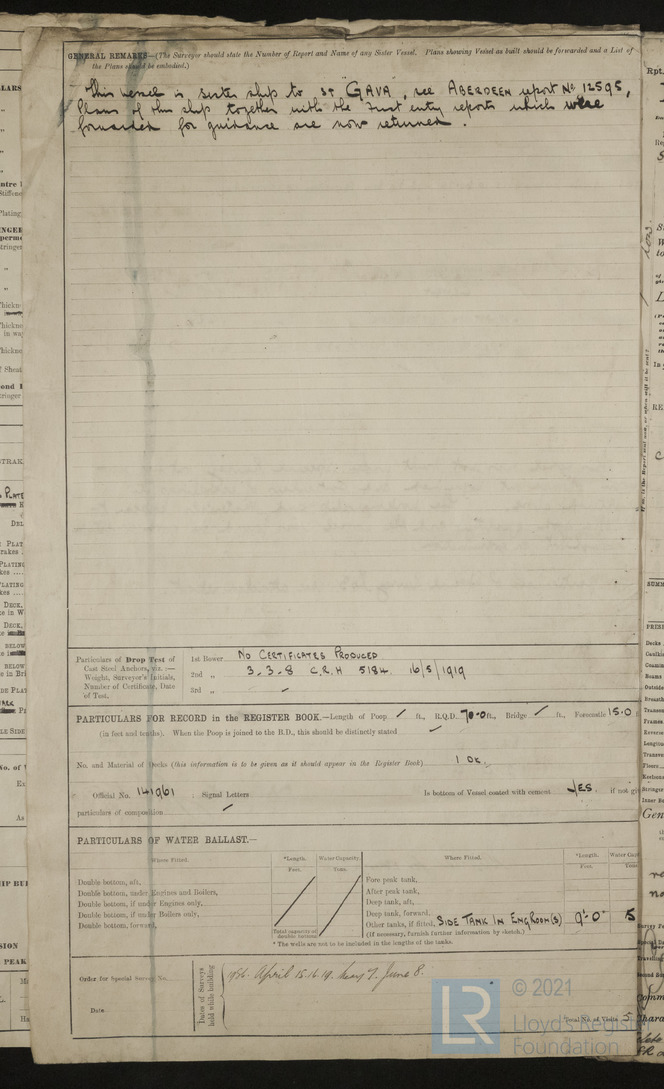 GENERAL REMARKS—(The Surveyor should state the Number of Report and Name of any Sister Vessel. Plans showing Vessel as built should be forwarded and a List of
the Plans should be embodied.)
This vessel is sister ship to st "GAVA", see ABERDEEN report No 12595,
Plans of this ship together with the first entry reports which were
forwarded for guidance are now returned.
Particulars of Drop Test of
Cast Steel Anchors, viz.:—
Weight, Surveyor's Initials,
Number of Certificate, Date
of Test.
1st Bower NO CERTIFICATES PRODUCED
2nd „ 3.3.8 C.R.H 5184 16/5/1919
3rd „ -
PARTICULARS FOR RECORD in the REGISTER BOOK.—Length of Poop / ft., R.Q.D. 70.0 ft., Bridge / ft., Forecastle 15.0 f
(in feet and tenths). When the Poop is joined to the B.D., this should be distinctly stated
No. and Material of Decks (this information is to be given as it should appear in the Register Book) 1 DK.
Official No. 141961 : Signal Letters Is bottom of Vessel coated with cement YES if not gi
particulars of composition
PARTICULARS OF WATER BALLAST.—
Where Fitted. *Length. Water Capacity. Where Fitted. *Length. Water Cap
Feet. Tons. Feet. Tons
Double bottom, aft,
Double bottom, under Engines and Boilers,
Double bottom, if under Engines only,
Double bottom, if under Boilers only,
Double bottom, forward,
Total capacity of
double bottom
Fore peak tank,
After peak tank,
Deep tank, aft,
Deep tank, forward,
Other tanks, if fitted, SIDE TANK IN ENG ROOM(S) 9'-0" 5
(If necessary, furnish further information by sketch.)
* The wells are not to be included in the lengths of the tanks.
Order for Special Survey No.
Date
Dates of Surveys
held while building
1936. April 15.16.19. May 7. June 8.
Total No. of Visits 5
LR
© 2021
Lloyd's Register
Foundation